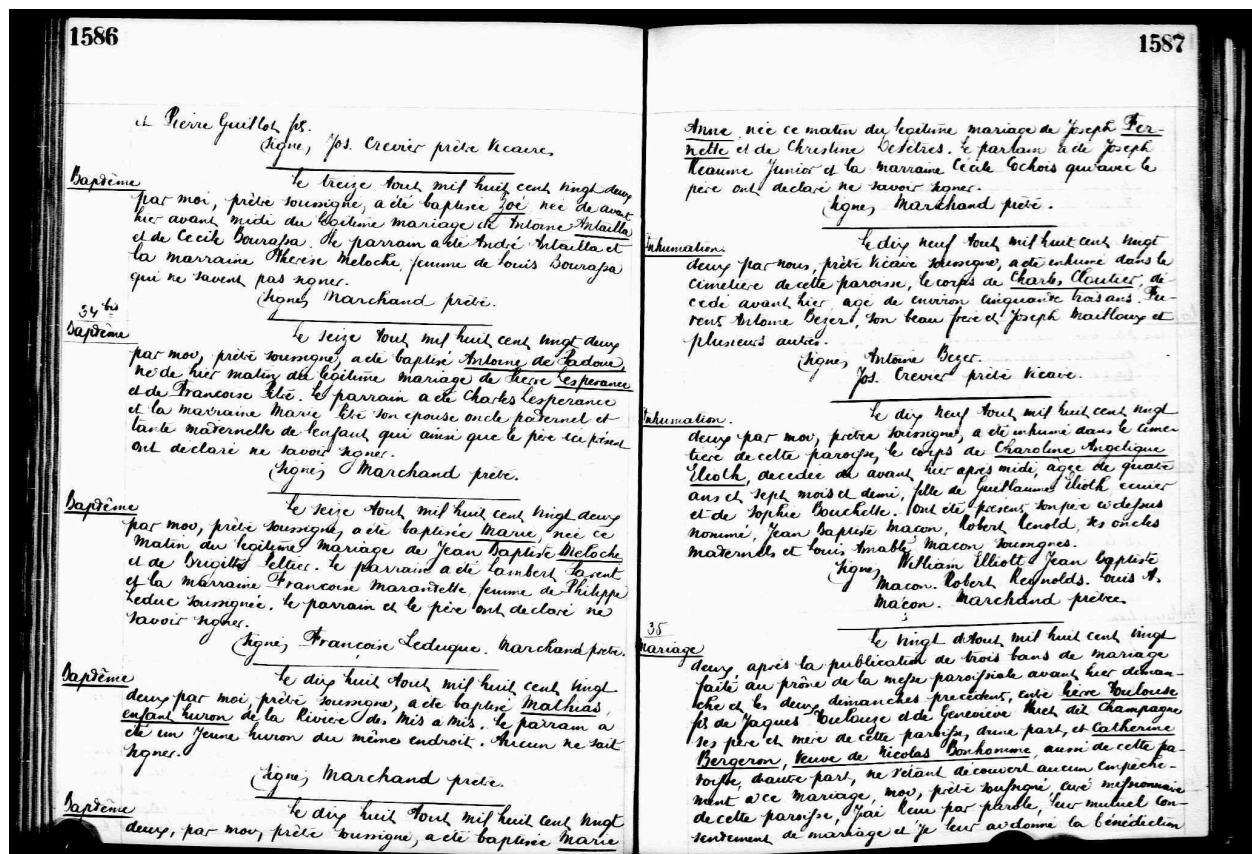 1586
et Pierre Guillot fils.
(Signé) Jos. Crevier prêtre vicaire
Baptême
Le treize Aout mil huit cent vingt deux
par moi, prêtre soussigné, a été baptisée Zoé née de avant
hier avant midi du légitime mariage de Antoine Antailla
et de Cecile Bourassa. Le parrain a été André Antailla et
la marraine Thérèse Meloche, femme de Louis Bourassa
qui ne savent pas signer.
(Signé) Marchand prêtre.
34 bis
Baptême
Le seize Aout mil huit cent vingt deux
par moi, prêtre soussigné, a été baptisé Antoine de Padoue,
né de hier matin du légitime mariage de Pierre Lesperance
et de Francoise Bibe. Le parrain a été Charles Lesperance
et la marraine Marie son epouse oncle paternel et
tante maternelle de l'enfant qui ainsi que le père ici présent
ont déclaré ne savoir signer.
(Signé) Marchand prêtre.
Baptême
Le seize Aout mil huit cent vingt deux
par moi, prêtre soussigné, a été baptisée Marie, née ce
matin du légitime mariage de Jean Baptiste Meloche
et de Brigitte Peltier. Le parrain a été Lambert
et la marraine Francoise Marantette, femme de Philippe
Leduc soussignée. Le parrain et le père ont déclaré ne
savoir signer.
(Signé) Françoise Leduque. Marchand prêtre.
Baptême
Le dix huit Aout mil huit cent vingt
deux par moi, prêtre soussigné, a été baptisé Mathias,
enfant huron de la Rivière des Mis a Mis. Le parrain a
été un Jeune huron du même endroit. Aucun ne sait
signer.
(Signé) Marchand prêtre.
Baptême
Le dix huit Aout mil huit cent vingt
deux, par moi, prêtre soussigné, a été baptisée Marie
1587
Anne née ce matin du légitime mariage de Joseph Per-
nette et de Christine Desêtres. Le parrain a été Joseph
Reaume Junior et la marraine Cécile Cochois qui avec le
père ont déclaré ne savoir signer.
(Signé) Marchand prêtre.
Inhumation.
Le dix neuf Aout mil huit cent vingt
deux par nous, prêtre vicaire soussigné, a été inhumé dans le
cimetière de cette paroisse, le corps de Charles Cloutier, dé-
cédé avant hier, agé de environ cinquante trois ans. Fu-
rent Antoine Bezer, son beau frère et Joseph Mailloux et
plusieurs autres.
(Signé) Antoine Bezer.
Jos. Crevier prêtre vicaire.
Inhumation.
Le dix neuf Aout mil huit cent vingt
deux par moi, prêtre soussigné, a été inhumé dans le cime-
tière de cette paroisse, le corps de Charoline Angelique
Elioth, décédée de avant hier après midi, agée de quatre
ans et sept mois et demi, fille de Guillaume Elioth, ecuier
et de Sophie Bouchette. Ont été présent son père ci dessus
nommé, Jean Baptiste Macon, Robert Renold, ses oncles
maternels et Louis Amable Macon soussignés.
(Signé) William Elliott Jean Baptiste
Macon. Robert Reynolds. Louis A.
Macon. Marchand prêtre
35
Mariage
Le vingt d'Aout mil huit cent vingt
deux, après la publication de trois bans de mariage
faite au prône de la messe paroissiale avant hier diman-
che et les deux dimanches précédent, entre Pierre Toulouse
fils de Jaques Toulouze et de Geneviève Huret dit Champagne
ses père et mère de cette paroisse, d'une part, et Catherine
Bergeron, veuve de Nicolas Bonhomme, aussi de cette pa-
roisse, d'autre part, ne s'étant découvert aucun empêche-
ment a ce mariage, moi, prêtre soussigné, curé missionnaire
de cette paroisse, J'ai reçu par parole, leur mutuel con-
sentement de mariage et je leur ai donné la bénédiction